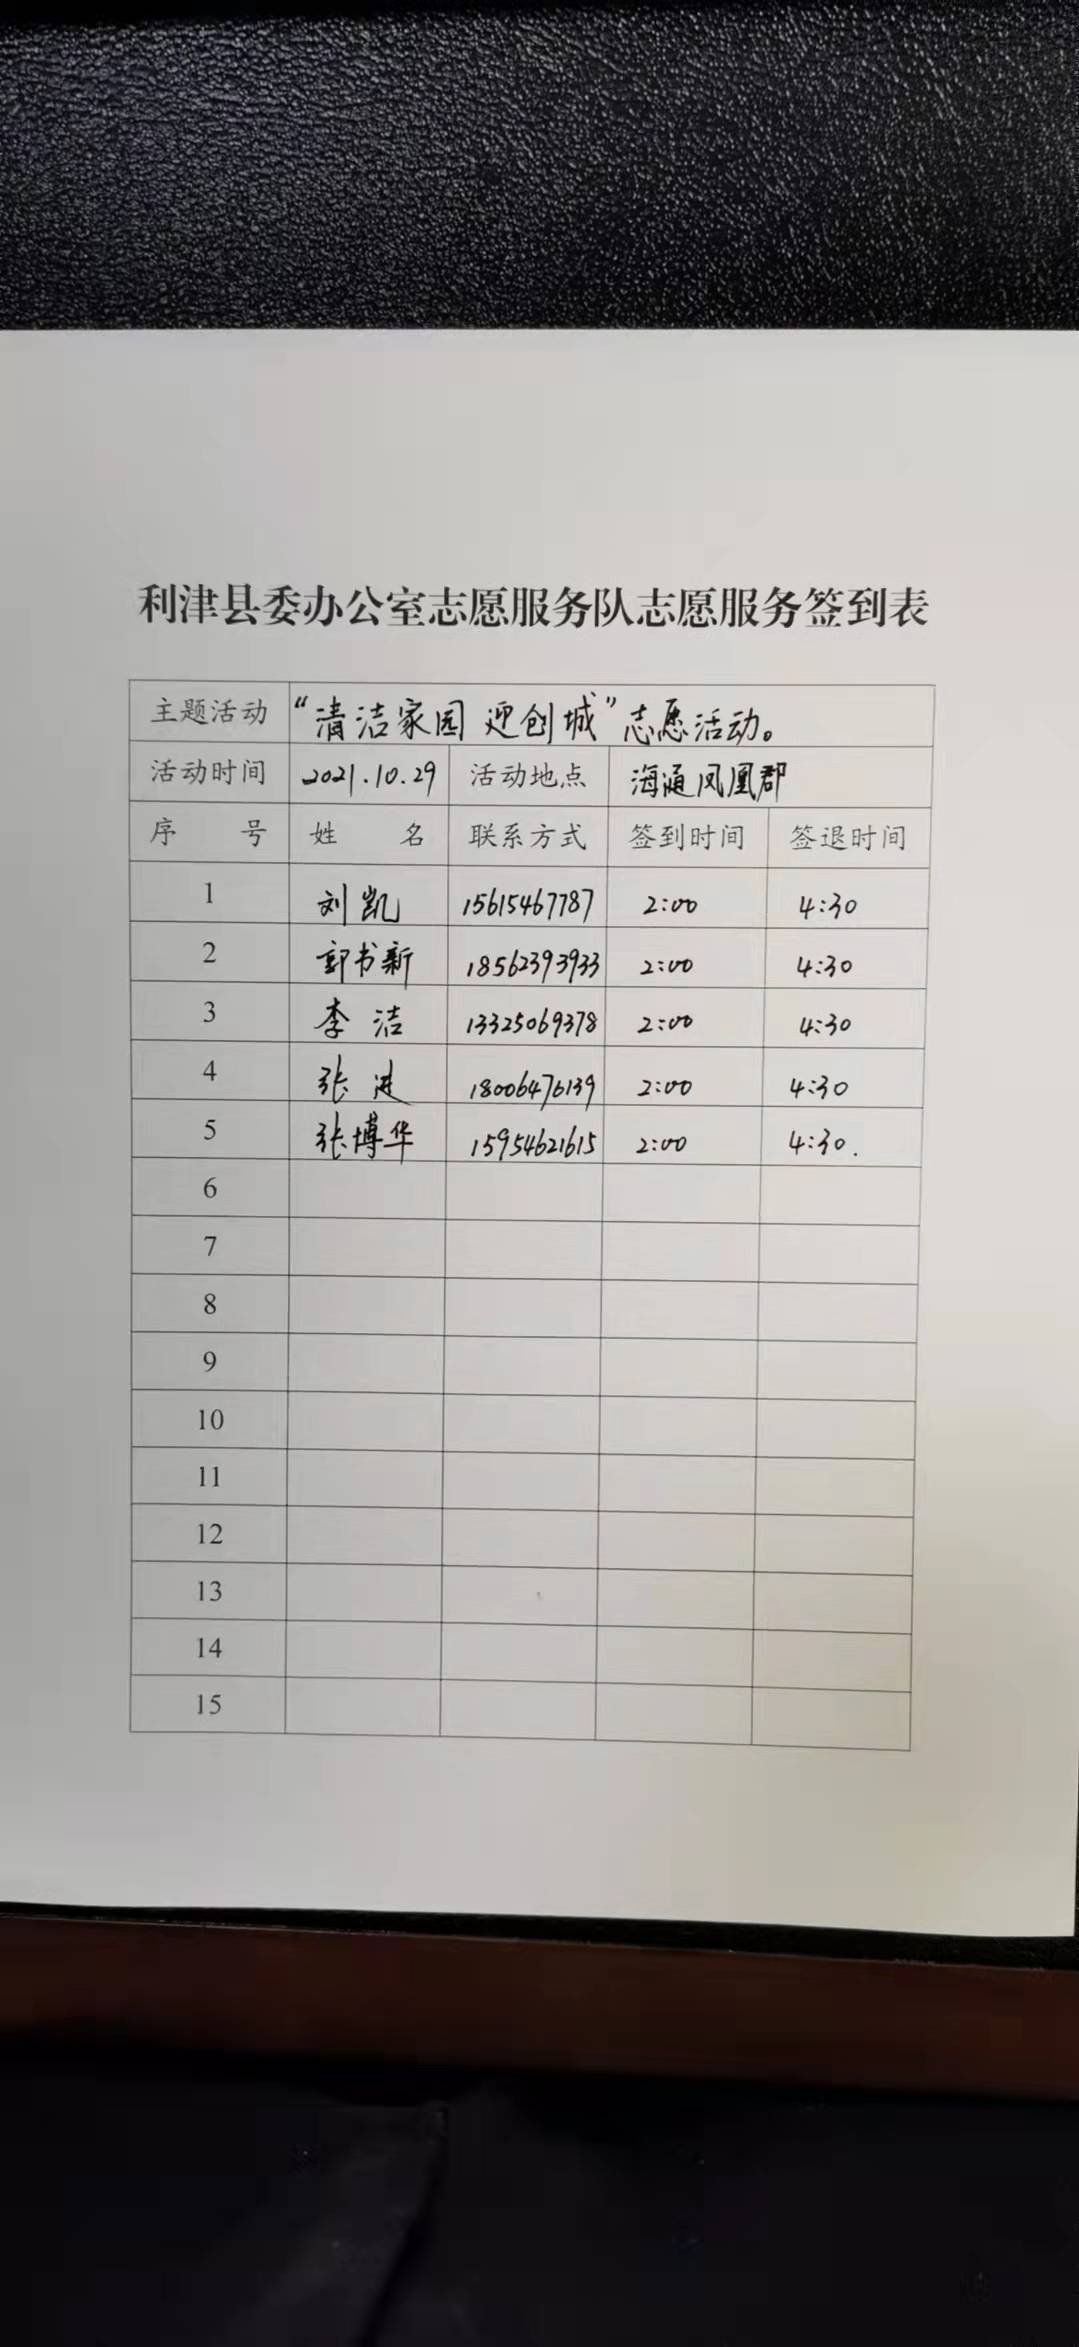 利津县委办公室志愿服务队志愿服务签到表
主题活动 “清洁家园 迎创城”志愿活动。
活动时间 2021.10.29 活动地点 海通凤凰郡
序 号 姓 名 联系方式 签到时间 签退时间
1 刘凯 15615467787 2:00 4:30
2 郭书新 18562393933 2:00 4:30
3 李洁 13325069378 2:00 4:30
4 张 18006476139 2:00 4:30
5 张博华 15954621615 2:00 4:30.
6
7
8
9
10
11
12
13
14
15